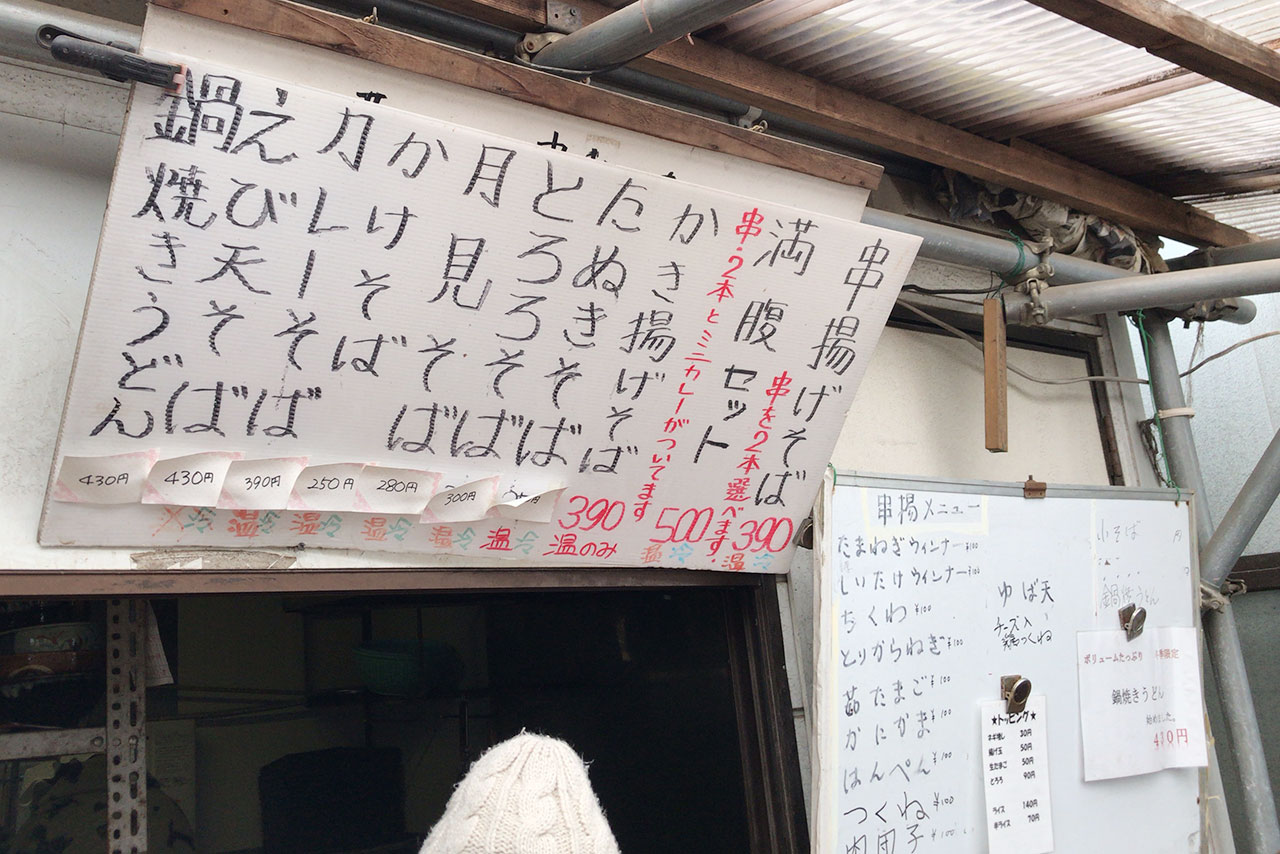 串揚げそば
串を2本選べます。
満腹セット
串・2本とミニカレーがついてます
かき揚げそば
たぬきそば
とろろそば
月見そば
かけそば
カレーそば
えび天そば
鍋焼きうどん
430円
430円
390円
250円
280円
300円
390
500
390
温冷
温冷
温冷
温冷
温
冷
温のみ
温冷
温冷
串揚メニュー
たまねぎウィンナー¥100
しいたけウインナー¥100
ちくわ ¥100
とりからねぎ¥100
茹たまご¥100
かにかま¥100
はんぺん¥100
つくね¥100
肉団子¥100
ゆば天
チーズ入
鶏つくね
小そば 円
鍋焼うどん
★トッピング★
ネギ増し 30円
揚げ玉 50円
生たまご 50円
とろろ 90円
ライス 140円
半ライス 70円
ボリュームたっぷり 冬季限定
鍋焼きうどん
始めました。
430円